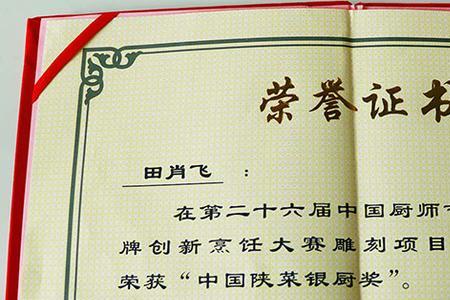 荣誉证书
田肖飞：
在第二十六届中国厨师
牌创新烹饪大赛雕刻项目
荣获“中国陕菜银厨奖”。